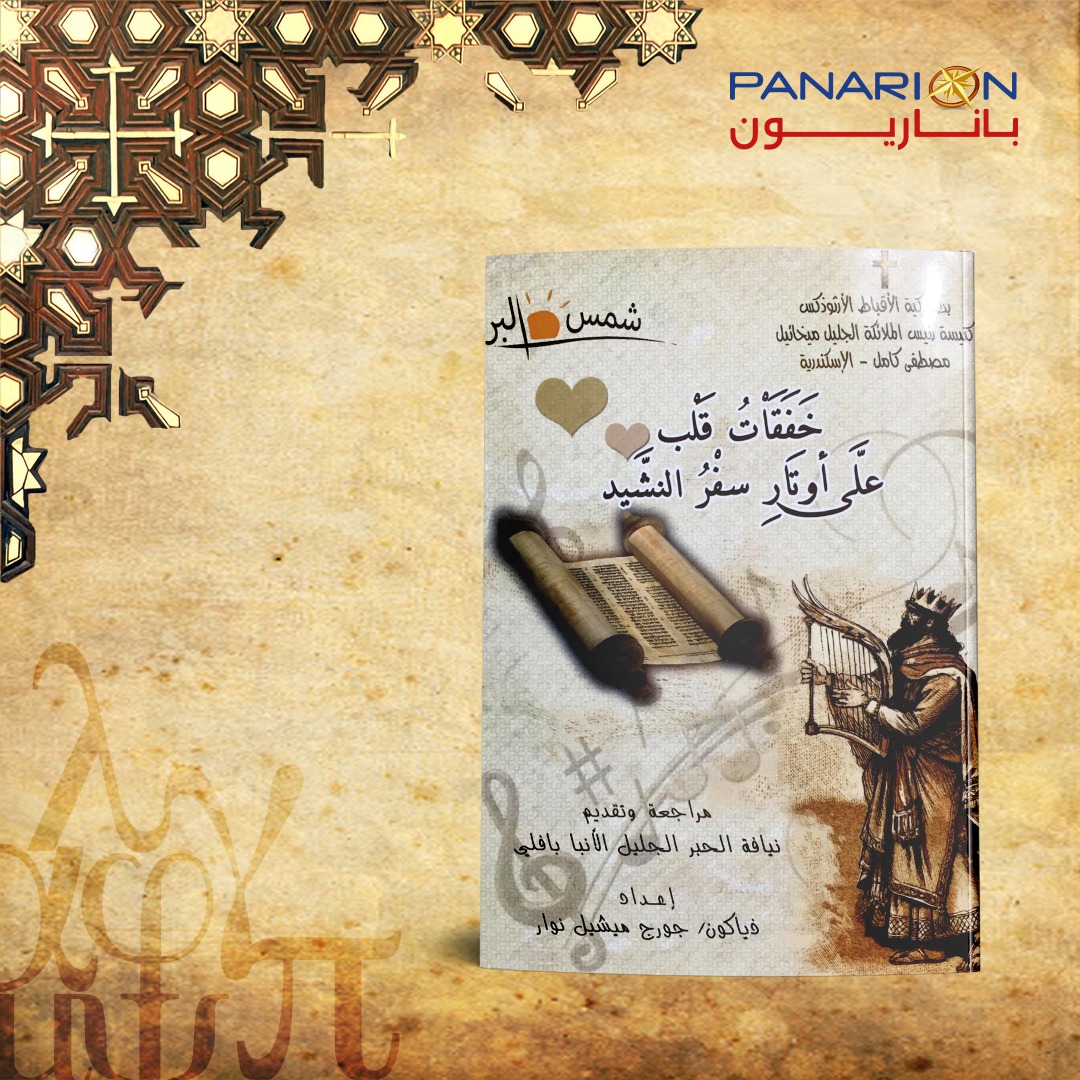 PANARION
باناريون
شمس البر
بطريركية الأقباط الأرثوذكس
كنيسة رئيس الملائكة الجليل ميخائيل
مصطفى كامل - الإسكندرية
خَفَقَاْتُ قَلْب
علَّى أوتَارِ سفْرُ النشَّيد
مراجعة وتقديم
نيافة الحبر الجليل الأنبا بافلي
إعداد
ذياكون/ جورج ميشيل نوار